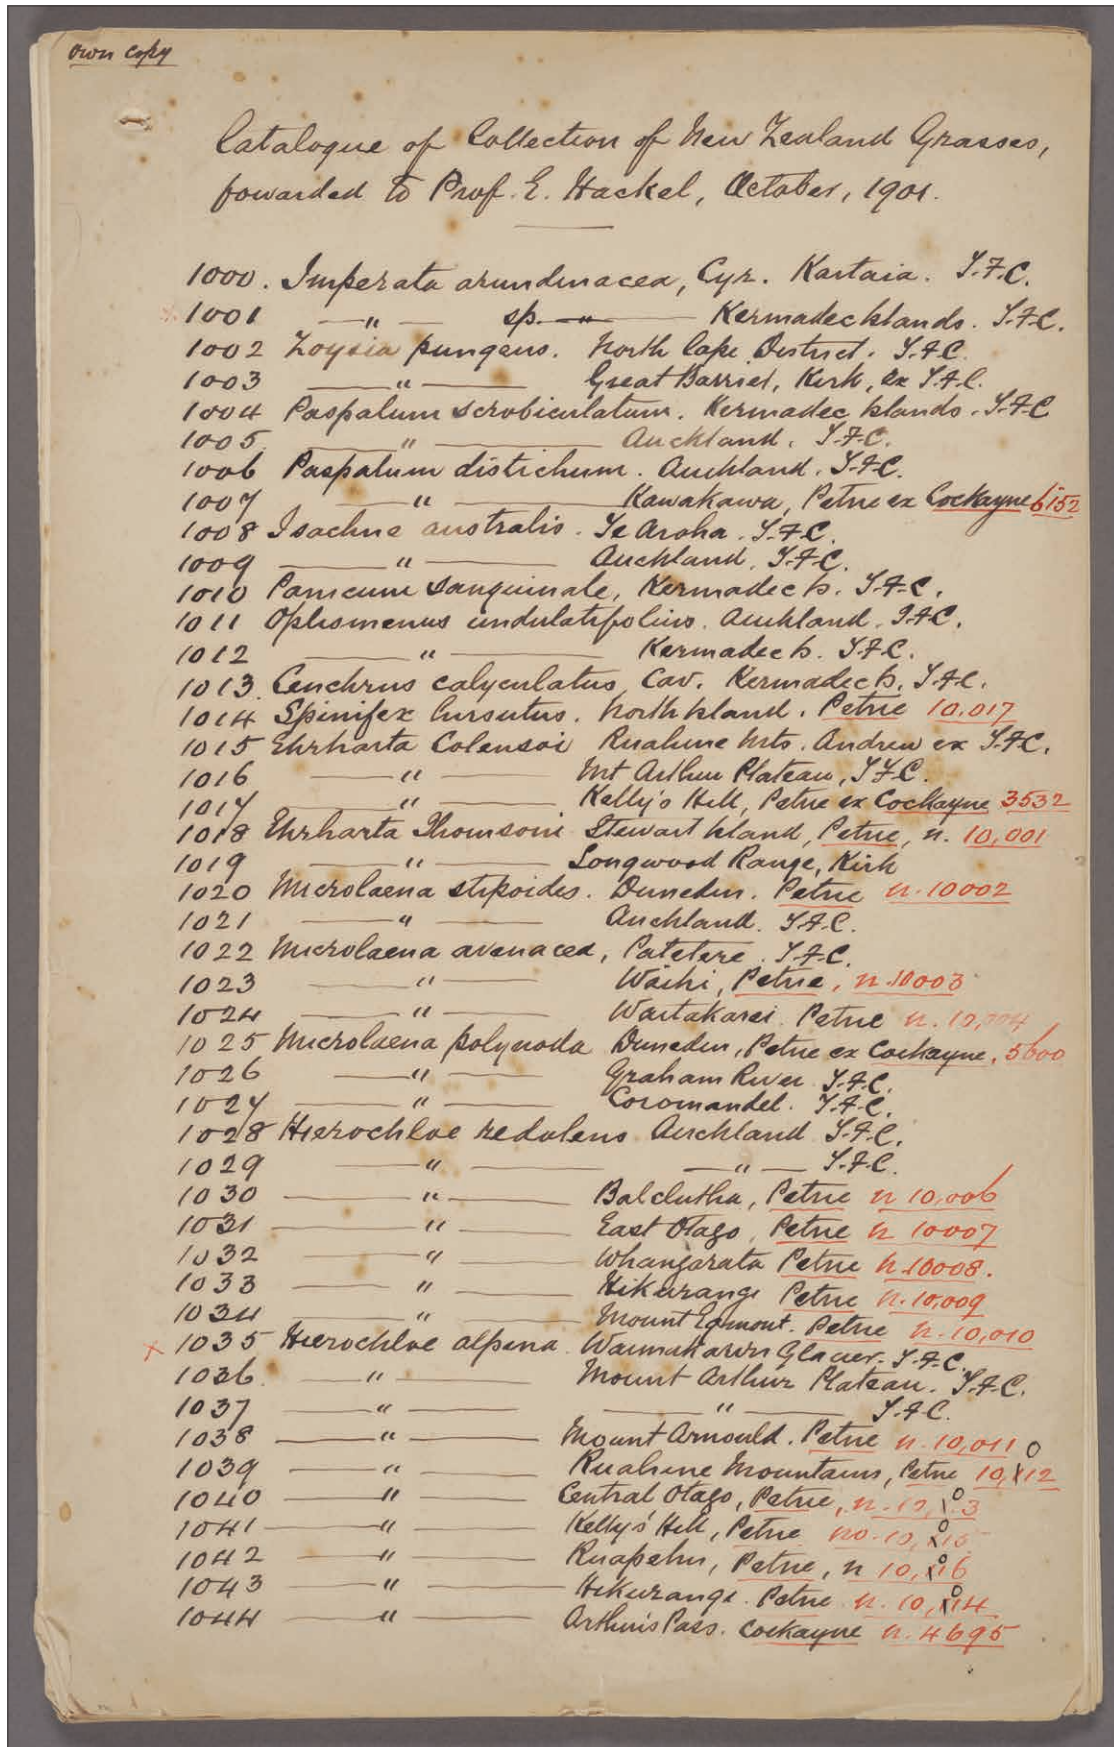 own copy
Catalogue of Collection of New Zealand Grasses,
fowarded to Prof. E. Hackel, October, 1901.
1000. Imperata arundinacea, Cyr. Kaitaia. T.F.C.
x 1001 — " — sp. — " — Kermadec Islands. T.F.C.
1002 Zoysia pungens. North Cape District. T.F.C.
1003 — " — Great Barrier, Kirk, ex T.F.C.
1004 Paspalum scrobiculatum. Kermadec Islands. T.F.C
1005 — " — Auckland. T.F.C.
1006 Paspalum distichum. Auckland. T.F.C.
1007 — " — Kawakawa, Petrie ex Cockayne 6152
1008 Isachne australis. Te Aroha. T.F.C.
1009 — " — Auckland, T.F.C.
1010 Panicum sanguinale, Kermadec Is. T.F.C.
1011 Oplismenus undulatifolius. Auckland. T.F.C.
1012 — " — Kermadec Is. T.F.C.
1013. Cenchrus calyculatus, Cav. Kermadec Is. T.F.C.
1014 Spinifex hirsutus. North Island. Petrie 10,017
1015 Ehrharta Colensoi Ruahine Mts. Andrew ex T.F.C.
1016 — " — Mt Arthur Plateau, T.F.C.
1017 — " — Kelly's Hill, Petrie ex Cockayne 3532
1018 Ehrharta Thomsoni Stewart Island, Petrie, n. 10,001
1019 — " — Longwood Range, Kirk
1020 Microlaena stipoides. Dunedin. Petrie n. 10002
1021 — " — Auckland. T.F.C.
1022 Microlaena avenacea, Patetere. T.F.C.
1023 — " — Waihi, Petrie, n. 10003
1024 — " — Waitakarei. Petrie n.
1025 Microlaena polynoda Dunedin, Petrie ex Cockayne, 5600
1026 — " — Graham River. T.F.C.
1027 — " — Coromandel. T.F.C.
1028 Hierochloe redolens Auckland T.F.C.
1029 — " — — " — T.F.C.
1030 — " — Balclutha, Petrie n 10,006
1031 — " — East Otago, Petrie n 10007
1032 — " — Whangarata Petrie n. 10008.
1033 — " — Hikurangi Petrie n. 10,009
1034 " — Mount Egmont. Petrie n. 10,010
x 1035 Hierochloe alpina. Waimakariri Glacier. T.F.C.
1036 — " — Mount Arthur Plateau. T.F.C.
1037 — " — — " — T.F.C.
1038 — " — Mount Arnould. Petrie n. 10,011
1039 — " — Ruahine Mountains, Petrie 10,012
1040 — " — Central Otago, Petrie, n.
1041 — " — Kelly's Hill, Petrie no. 10,015
1042 — " — Ruapehu, Petrie, n 10,016
1043 — " — Hikurangi. Petrie n. 10,014
1044 — " — Arthur's Pass. Cockayne n. 4695